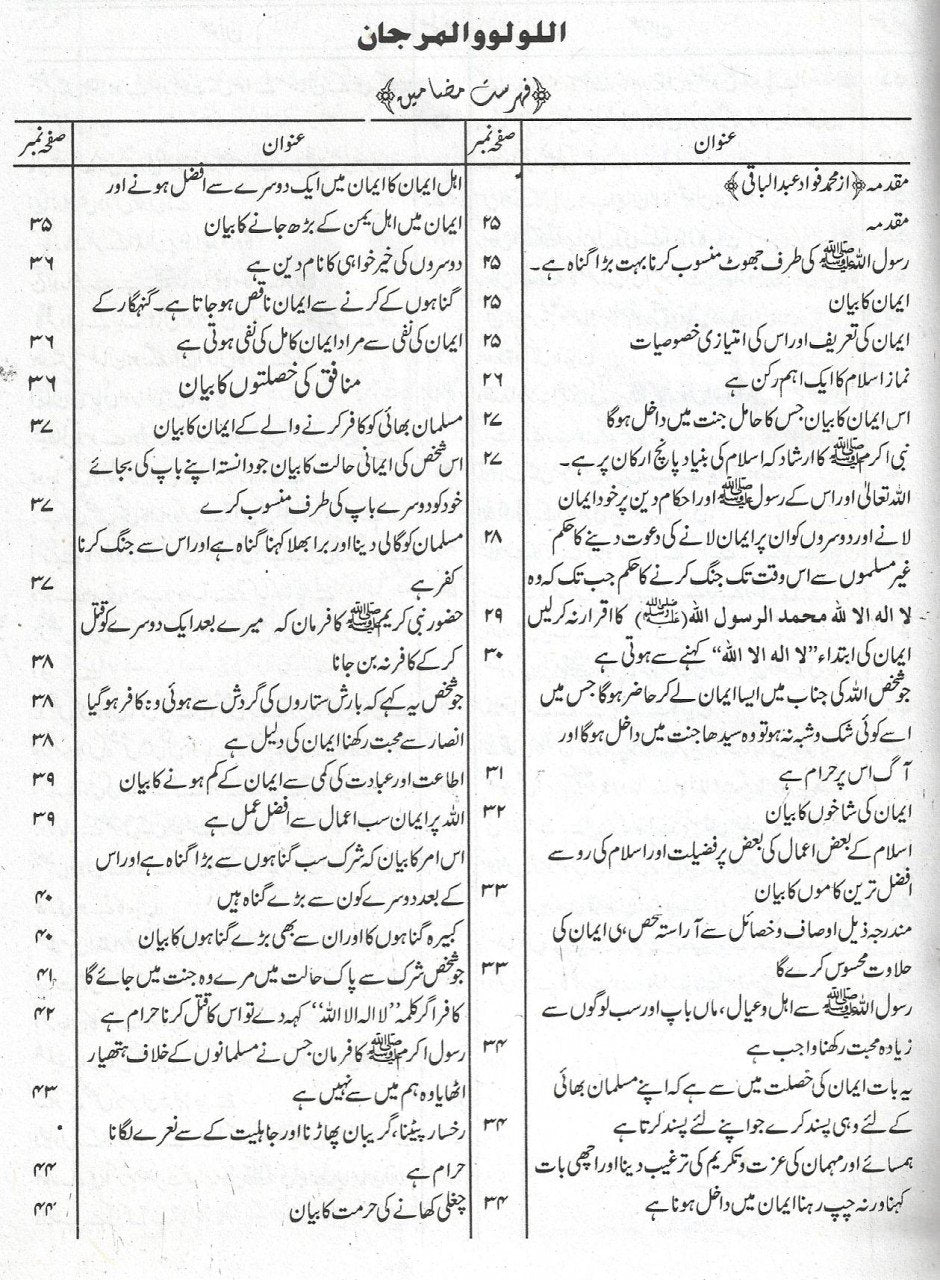 اللولوو المرجان
﴿فہرست مضامین﴾
عنوان صفحہ نمبر
مقدمہ ﴿از محمد فواد عبدالباقی﴾
مقدمہ ۲۵
رسول اللہ ﷺ کی طرف جھوٹ منسوب کرنا بہت بڑا گناہ ہے۔ ۲۵
ایمان کا بیان ۲۵
ایمان کی تعریف اور اس کی امتیازی خصوصیات ۲۵
نماز اسلام کا ایک اہم رکن ہے ۲۶
اس ایمان کا بیان جس کا حامل جنت میں داخل ہوگا ۲۷
نبی اکرم ﷺ کا ارشاد کہ اسلام کی بنیاد پانچ ارکان پر ہے۔ ۲۷
اللہ تعالیٰ اور اس کے رسول ﷺ اور احکام دین پر خود ایمان
لانے اور دوسروں کو ان پر ایمان لانے کی دعوت دینے کا حکم ۲۸
غیر مسلموں سے اس وقت تک جنگ کرنے کا حکم جب تک کہ وہ
لا اله الا لله محمد الرسول الله (ﷺ) کا اقرار نہ کرلیں ۲۹
ایمان کی ابتداء ”لا اله الا الله“ کہنے سے ہوتی ہے ۳۰
جو شخص اللہ کی جناب میں ایسا ایمان لے کر حاضر ہوگا جس میں
اسے کوئی شک و شبہ نہ ہو تو وہ سیدھا جنت میں داخل ہوگا اور
آگ اس پر حرام ہے ۳۱
ایمان کی شاخوں کا بیان ۳۲
اسلام کے بعض اعمال کی بعض پر فضیلت اور اسلام کی رو سے
افضل ترین کاموں کا بیان ۳۳
مندرجہ ذیل اوصاف و خصائل سے آراستہ شخص ہی ایمان کی
حلاوت محسوس کرے گا ۳۳
رسول اللہ ﷺ سے اہل و عیال، ماں باپ اور سب لوگوں سے
زیادہ محبت رکھنا واجب ہے ۳۴
یہ بات ایمان کی خصلت میں سے ہے کہ اپنے مسلمان بھائی
کے لئے وہی پسند کرے جو اپنے لئے پسند کرتا ہے ۳۴
ہمسائے اور مہمان کی عزت و تکریم کی ترغیب دینا اور اچھی بات
کہنا ورنہ چپ رہنا ایمان میں داخل ہونا ہے ۳۴
عنوان صفحہ نمبر
اہل ایمان کا ایمان میں ایک دوسرے سے افضل ہونے اور
ایمان میں اہل یمن کے بڑھ جانے کا بیان ۳۵
دوسروں کی خیر خواہی کا نام دین ہے ۳۶
گناہوں کے کرنے سے ایمان ناقص ہو جاتا ہے۔ گنہگار کے
ایمان کی نفی سے مراد ایمان کامل کی نفی ہوتی ہے ۳۶
منافق کی خصلتوں کا بیان ۳۶
مسلمان بھائی کو کافر کرنے والے کے ایمان کا بیان ۳۷
اس شخص کی ایمانی حالت کا بیان جو دانستہ اپنے باپ کی بجائے
خود کو دوسرے باپ کی طرف منسوب کرے ۳۷
مسلمان کو گالی دینا اور برا بھلا کہنا گناہ ہے اور اس سے جنگ کرنا
کفر ہے ۳۷
حضور نبی کریم ﷺ کا فرمان کہ میرے بعد ایک دوسرے کو قتل
کر کے کافر نہ بن جانا ۳۸
جو شخص یہ کہے کہ بارش ستاروں کی گردش سے ہوئی وہ کافر ہو گیا ۳۸
انصار سے محبت رکھنا ایمان کی دلیل ہے ۳۸
اطاعت اور عبادت کی کمی سے ایمان کے کم ہونے کا بیان ۳۹
اللہ پر ایمان سب اعمال سے افضل عمل ہے ۳۹
اس امر کا بیان کہ شرک سب گناہوں سے بڑا گناہ ہے اور اس
کے بعد دوسرے کون سے بڑے گناہ ہیں ۴۰
کبیرہ گناہوں کا اور ان سے بھی بڑے گناہوں کا بیان ۴۰
جو شخص شرک سے پاک حالت میں مرے وہ جنت میں جائے گا ۴۱
کافر اگر کلمہ ”لا الہ الا اللہ“ کہہ دے تو اس کا قتل کرنا حرام ہے ۴۲
رسول اکرم ﷺ کا فرمان جس نے مسلمانوں کے خلاف ہتھیار
اٹھایا وہ ہم میں سے نہیں ہے ۴۳
رخسار پیٹنا، گریبان پھاڑنا اور جاہلیت کے سے نعرے لگانا
حرام ہے ۴۴
چغلی کھانے کی حرمت کا بیان ۴۴